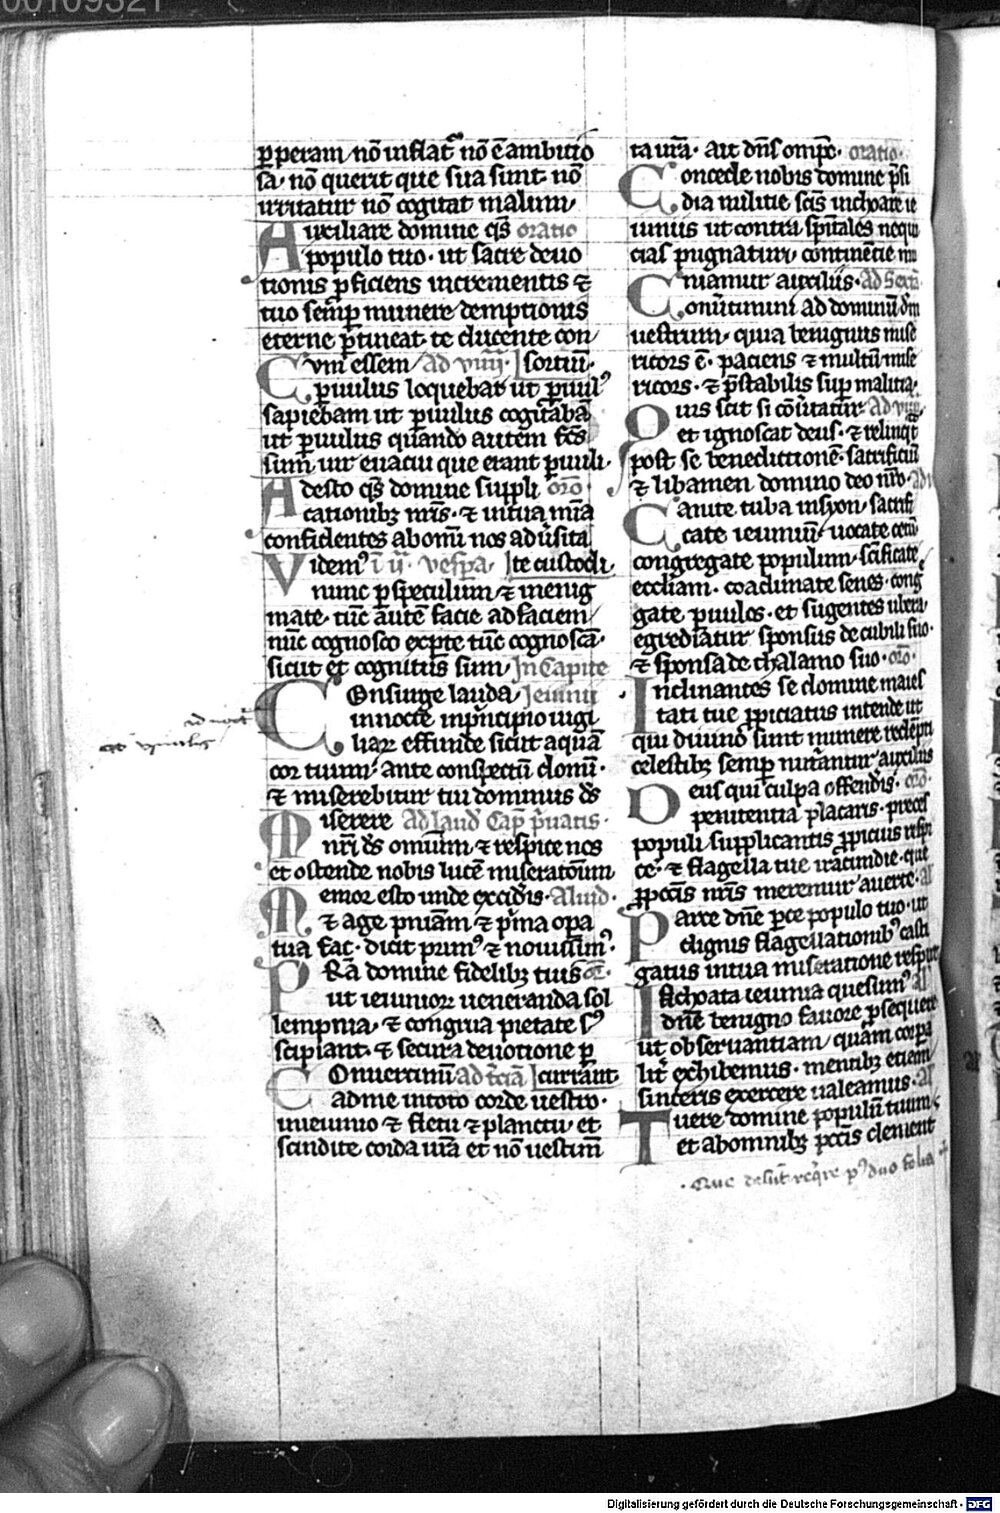 00109321
ꝑperam· nō inflat᷑ nō ē ambitio
sa· nō querit que sua sunt· nō
irritatur nō cogitat malum·
Auxiliare domine q̄s oratio
populo tuo· ut sacre deuo
tionis ꝓficiens incrementis ⁊
tuo semꝑ munere demptionis
eterne ꝑtineat te ducente con
Cum essem Ad viiii· sortiū·
ꝑuulus loquebar ut ꝑuulꝰ
sapiebam ut ꝑuulus cogitabā
ut ꝑuulus quando autem fc̄s
sum uir euacui que erant ꝑuuli·
Adesto q̄s domine suppli oro
cationibꝫ nr̄is· ⁊ in tua mīa
confidentes ab omī nos adūsita
Videmꝰ i ii· vespa· te custodi·
nunc ꝑ speculum ⁊ in enig
mate· tūc autē facie ad faciem
nūc cognosco ex ꝑte tūc cognoscā·
sicut et cognitus sum· In Capite
Consurge lauda· Ieiunii
in nocte in pͥncipio uigi
liaꝝ effunde sicut aquā
cor tuum· ante conspectū domī·
⁊ miserebitur tui dominus d̄s
Miserere Ad laud Cap pͥuatis·
nr̄i d̄s omium ⁊ respice nos
et ostende nobis lucē miseratoīum
Memor esto unde excidis· Aliud·
⁊ age pn̄iam ⁊ pͥma opa
tua fac· dicit primꝰ ⁊ nouissimꝰ·
Pr̄a domine fidelibꝫ tuis or̄·
ut ieiunioꝝ ueneranda sol
lempnia· ⁊ congrua pietate sꝰ
scipiant· ⁊ secura deuotione ꝑ
Conuertimī Ad tciā currant
ad me in toto corde uestro·
in ieiunio ⁊ fletu ⁊ planctu· et
scindite corda ur̄a et nō uestim̄
ta ur̄a· ait dn̄s omp̄c· oratio·
Concede nobis domine p̄si
dia militie sc̄is inchoare ie
iuniis ut contra spiritales nequi
cias pugnaturi· continētie mu
niamur auxiliis· Ad Sextā
Conūtimini ad dominū dm̄
uestrum· quia benignus mise
ricors ē· paciens ⁊ multū mise
ricors· ⁊ p̄stabilis suꝑ malitia·
Quis scit si cōūtatur· Ad viiii
et ignoscat deus· ⁊ relinq̄t
post se benedictionē· sacrificiū
⁊ libamen domino deo nr̄o· Ad
Canite tuba in syon· sacrifi
cate ieiuniū· uocate cetū
congregate populum· sc̄ificate
eccliam· coadunate senes· cong̊
gate ꝑuulos· et sugentes ubera·
egrediatur sponsus de cubili suo·
⁊ sponsa de thalamo suo· or̄o·
Inclinantes se domine maies
tati tue ꝓpiciatus intende ut
qui diuino sunt munere refecti
celestibꝫ semꝑ nutiantur auxiliis
Deus qui culpa offenderis· or̄o·
penitentia placaris· preces
populi supplicantis ꝓpicius respi
ce· ⁊ flagella tue iracundie· que
ꝓ pcc̄is nr̄is meremur auerte· al
Parce dn̄e ꝑce populo tuo· ut
dignis flagellationibꝰ casti
gatus in tua miseratione respiret
Inchoata ieiunia quesumꝰ al
dn̄e benigno fauore ꝓsequere
ut obseruantiam· quam corpa
lit᷑ exhibemus· mentibꝫ etiam
sinceris exercere ualeamus· al
Tuere domine populū tuum·
et ab omnibꝫ pcc̄is clement
Que desūt req̄re pꝰ duo folia
Digitalisierung gefördert durch die Deutsche Forschungsgemeinschaft - DFG